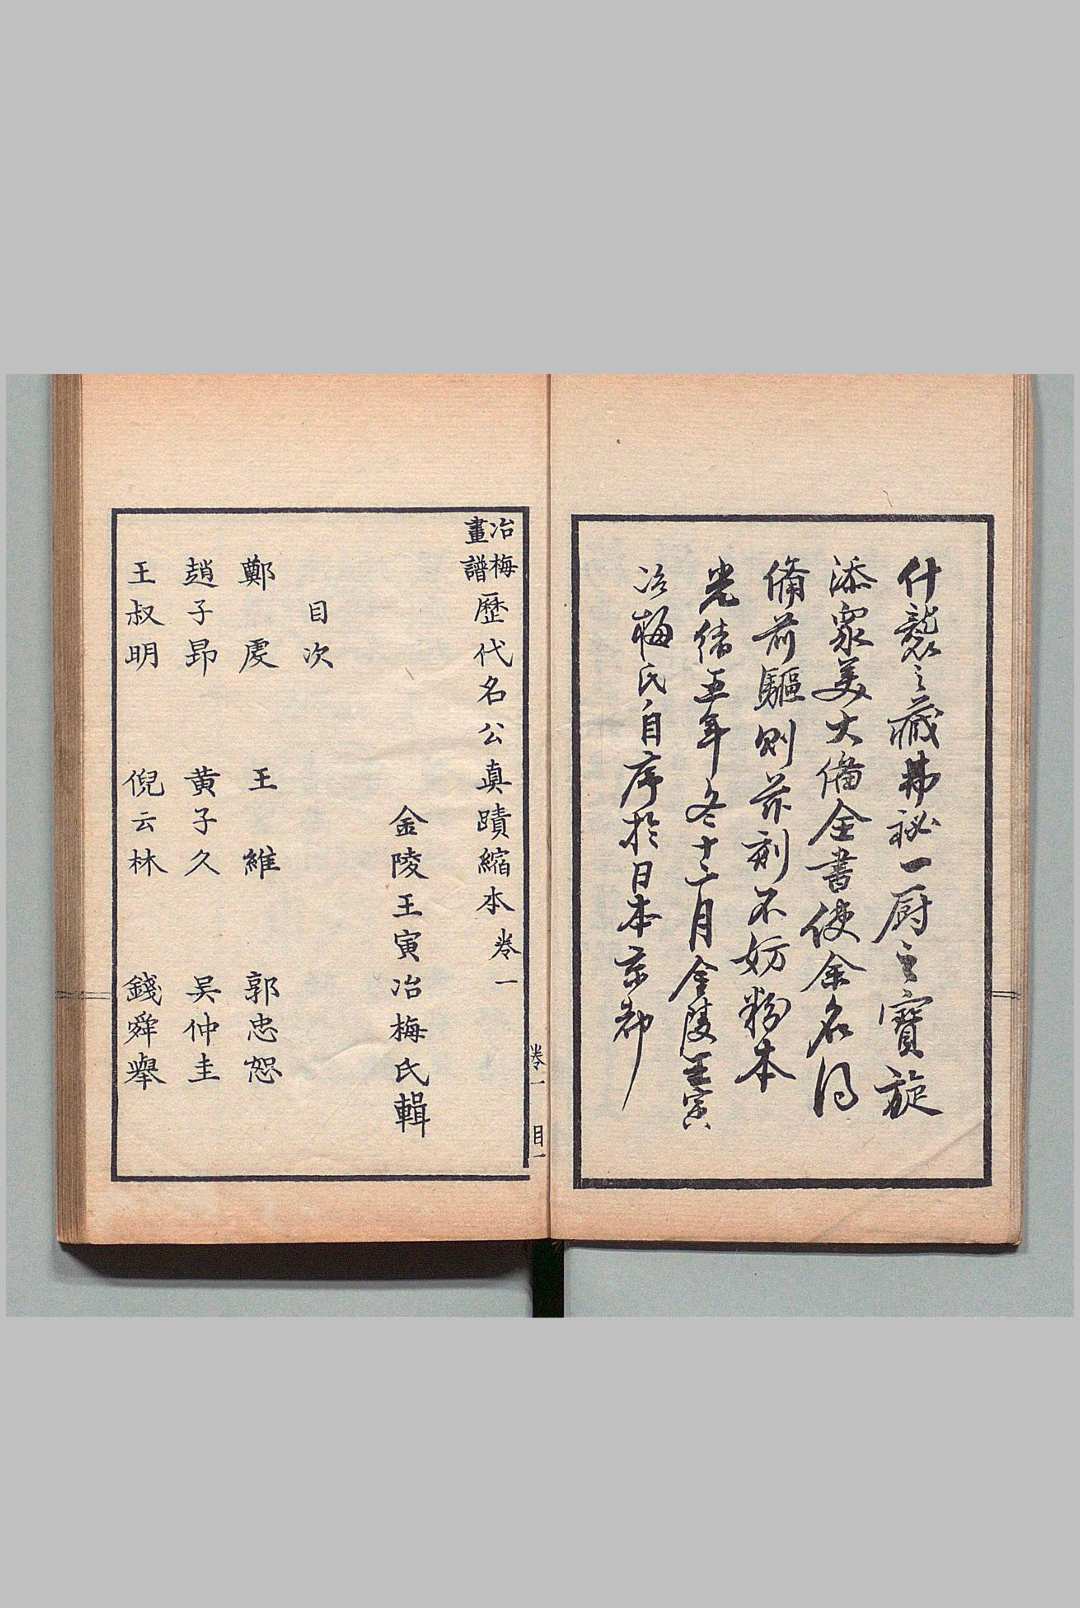 什襲之藏弗祕一厨之寶旋
添衆美大備全書使余名得
備前驅則茲刻不妨粉本
光緒五年冬十二月金陵王寅
冶梅氏自序於日本京都
冶梅畫譜歷代名公真蹟縮本卷一
金陵王寅冶梅氏輯
目次
鄭虔 王維 郭忠恕
趙子昂 黄子久 吴仲圭
王叔明 倪云林 錢舜舉
卷一 目一